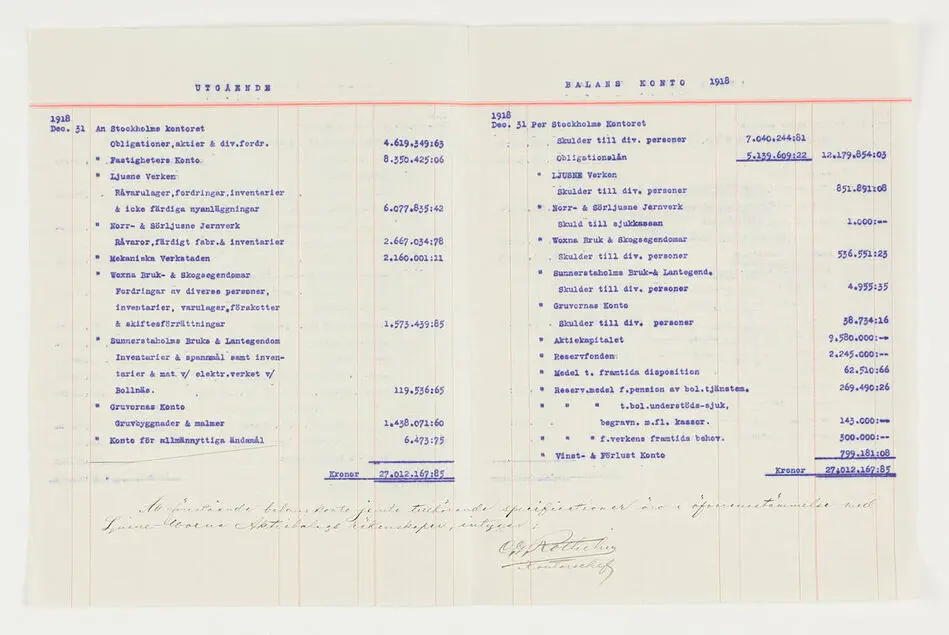 UTGÅENDE
1918
Dec. 31 An Stockholms kontoret
Obligationer,aktier & div.fordr. 4.619.349:63
" Fastigheters Konto 8.350.425:06
" Ljusne Verken
Råvarulager,fordringar,inventarier
& icke färdiga nyanläggningar 6.077.835:42
" Norr- & Sörljusne Jernverk
Råvaror,färdigt fabr.& inventarier 2.667.034:78
" Mekaniska Verkstaden 2.160.001:11
" Woxna Bruk- & Skogsegendomar
Fordringar av diverse personer,
inventarier, varulager,förskotter
& skiftesförrättningar 1.573.439:85
" Sunnerstaholms Bruks & Lantegendom
Inventarier & spannmål samt inven-
tarier & mat. v/ elektr.verket v/
Bollnäs. 119.536:65
" Gruvornas Konto
Gruvbyggnader & malmer 1.438.071:60
" Konto för allmännyttiga ändamål 6.473:75
Kronor 27.012.167:85
BALANS KONTO 1918
1918
Dec. 31 Per Stockholms Kontoret
Skulder till div. personer 7.040.244:81
Obligationslån 5.139.609:22 12.179.854:03
" LJUSNE Verken
Skulder till div. personer 851.891:08
" Norr- & Sörljusne Jernverk
Skuld till sjukkassan 1.000:--
" Woxna Bruk & Skogsegendomar
Skulder till div. personer 536.551:23
" Sunnerstaholms Bruk-& Lantegend.
Skulder till div. personer 4.955:35
" Gruvornas Konto
Skulder till div. personer 38.734:16
" Aktiekapitalet 9.580.000:--
" Reservfonden 2.245.000:--
" Medel t. framtida disposition 62.510:66
" Reserv.medel f.pension av bol.tjänstem. 269.490:26
" " " t.bol.understöds-sjuk,
begravn. m.fl. kassor. 143.000:--
" " " f.verkens framtida behov. 300.000:--
" Vinst- & Förlust Konto 799.181:08
Kronor 27.012.167:85
At förestående balanskonto jemte tillhörande specificationer äro i öfverensstämmelse med
Ljusne-Woxna Aktiebolags räkenskaper, intygar:
Kontorschef